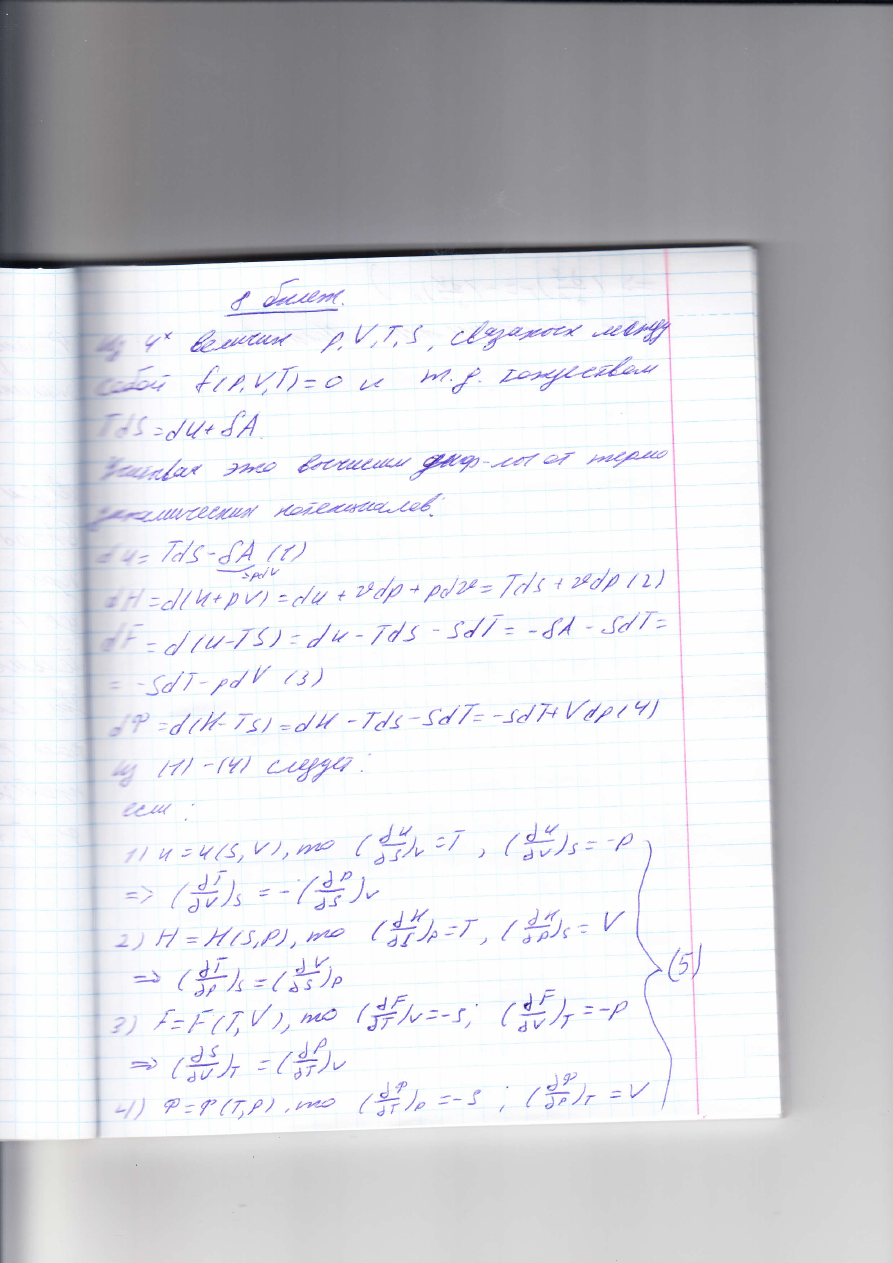 8 билет.
Из 4ˣ величин p, V, T, S, связаных между
собой f(p,V,T)=0 и т.д. тождеством
TdS=du+δA.
Учитывая это вычислим диф-лы от термо
динамических потенциалов:
du = TdS-δA (1)
=pdV
dH=d(u+pV)=du+vdp+pdv=Tds+vdp (2)
dF=d(u-TS)=du-TdS-SdT=-δA-SdT=
= -SdT-pdV (3)
dФ=d(H-TS)=dH-Tds-SdT=-SdT+Vdp (4)
из (1)-(4) следует:
если:
1) u=u(S,V), то (du/dS)v=T, (du/dV)s=-p
=> (dT/dV)s = -(dp/dS)v
2) H=H(S,p), то (dH/dS)p=T, (dH/dp)s=V
=> (dT/dp)s=(dV/dS)p
(5)
3) F=F(T,V), то (dF/dT)v=-S; (dF/dV)T=-p
=> (dS/dV)T=(dp/dT)v
4) Ф=Ф(T,p), то (dФ/dT)p=-S; (dФ/dp)T=V